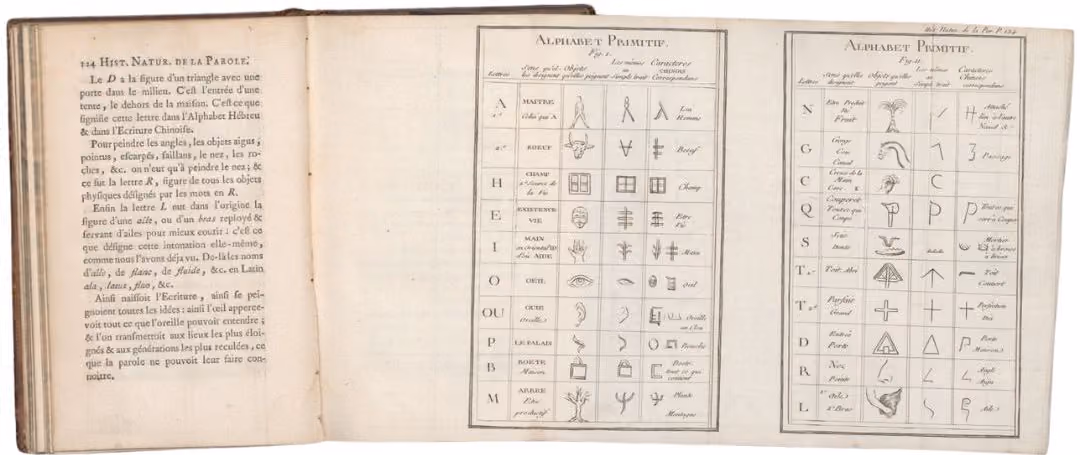 124 HIST. NATUR. DE LA PAROLE.
Le D a la figure d'un triangle avec une
porte dans le milieu. C'est l'entrée d'une
tente, le dehors de la maison. C'est ce que
signifie cette lettre dans l'Alphabet Hébreu
& dans l'Ecriture Chinoise.
Pour peindre les angles, les objets aigus,
pointus, escarpés, saillans, le nez, les ro-
ches, &c. on n'eut qu'à peindre le nez; &
ce fut la lettre R, figure de tous les objets
physiques désignés par les mots en R.
Enfin la lettre L eut dans l'origine la
figure d'une aîle, ou d'un bras reployé &
servant d'aîles pour mieux courir : c'est ce
que désigne cette intonation elle-même,
comme nous l'avons déja vu. De-là les noms
d'aîle, de flanc, de fluide, &c. en Latin
ala, latus, fluo, &c.
Ainsi naissoit l'Ecriture, ainsi se pei-
gnoient toutes les idées: ainsi l'œil apperce-
voit tout ce que l'oreille pouvoit entendre;
& l'on transmettoit aux lieux les plus éloi-
gnés & aux générations les plus reculées, ce
que la parole ne pouvoit leur faire con-
noître.
ALPHABET PRIMITIF.
Fig. I.
Lettres Sens qu'el- les désignent Objets qu'elles peignent Les mêmes au Simple trait Caracteres CHINOIS Correspondans
A 1° MAITRE Celui qui A Lin Homme
2° BŒUF Bœuf
H CHAMP Source de la Vie Champ
E EXISTENCE VIE Etre Vie
I MAIN en Oriental ID d'où AIDE Main
O OEIL Œil
OU OUIE Oreille Oreille
P LE PALAIS Bouche
B BOETE Maison Boete tout ce qui contient
M ARBRE Etre productif Plante Montagne
Hist. Natur. de la Par. P. 124
ALPHABET PRIMITIF.
Fig. II.
Lettres Sens qu'elles désignent Objets qu'elles peignent Les mêmes au Simple trait Caracteres Chinois correspondans
N Etre Produit Fruit Attaché
G Gorge Cou Canal Passage
C Creux de la Main
Q Couperet Tout ce qui Coupe Tout ce qui sert à Couper
S Scie Dents Mortier à broier
T 1° Toit, Abri Toit Couvert
T 2° Parfait Grand Perfection Dix
D Entrée Porte Porte Maison
R Nez Pointe Angle Aigu
L 1° Aile 2° Bras Aile